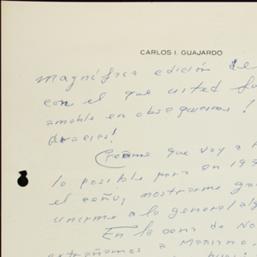 CARLOS I. GUAJARDO
magnífica edición de
con el que usted fu
amable en obsequiarnos!
Gracias!
Créame que voy a h
lo posible para en 19
el año, mostrarme ga
unirme a lo general al
En la cena de No
extrañamos a Mariano,